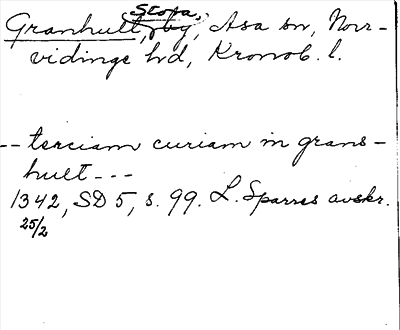 Stora,
Granhult, by, Asa sn, Norr-
vidinge hd, Kronob. l.
-- terciam curiam in grans-
hult ---
1342, SD 5, s. 99. L. Sparres avskr.
25/2